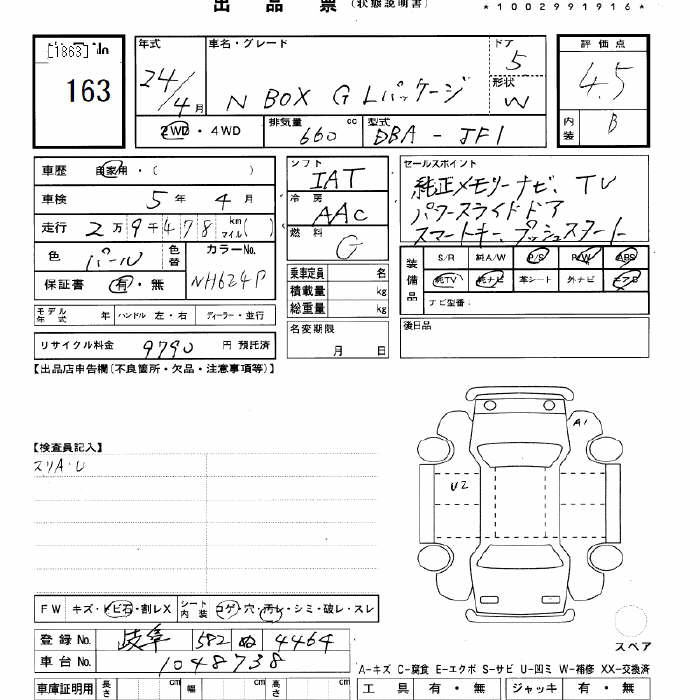 出品票 (状態説明書) *1002991916*
[1863] No
163
年式 車名・グレード ドア 評価点
24/4月 N BOX G Lパッケージ 5 4.5
形状 W
2WD・4WD 排気量 660 cc 型式 DBA-JF1 内装 B
車歴 自家用・( )
車検 5年4月
走行 2万9千478 km マイル( )
色 パール 色替 カラーNo. NH624P
保証書 有・無
モデル年式 年 ハンドル 左・右 ディーラー・並行
リサイクル料金 9790 円 預託済
シフト IAT
冷房 AAC
燃料 G
乗車定員 名
積載量 kg
総重量 kg
名変期限
月 日
セールスポイント
純正メモリーナビ、TV
パワースライドドア
スマートキー、プッシュスタート
装備品 S/R 純A/W P/S P/W ABS
純TV 純ナビ 革シート 外ナビ エアB
ナビ型番:
後日品
【出品店申告欄(不良箇所・欠品・注意事項等)】
【検査員記入】
スリA・U
A1
U2
FW キズ・トビ石・割レX シート内装 コゲ・穴・汚レ・シミ・破レ・スレ
登録No. 岐阜 582 ぬ 4464
車台No. 1048738
車庫証明用 長さ cm 幅 cm 高さ cm
スペア
A-キズ C-腐食 E-エクボ S-サビ U-凹ミ W-補修 XX-交換済
工具 有・無 ジャッキ 有・無